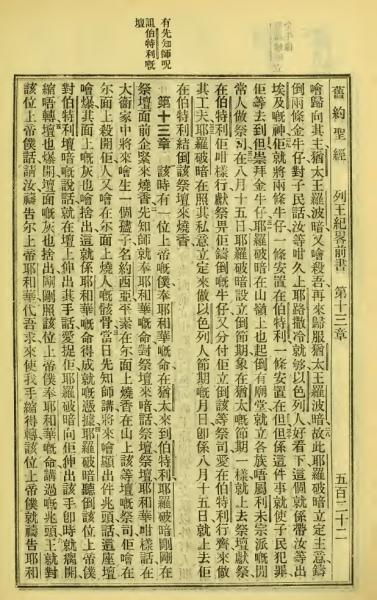 有先知師呪
詛伯特利嘅
壇
舊約聖經 列王紀畧前書 第十三章 五百二十二
噲歸向其主猶太王羅波暗又噲殺吾再來歸服猶太王羅波暗故此耶羅破暗立定主意鑄
倒兩條金牛仔對子民話汝等咁久上耶路撒冷就够以色列人好看下這個就係帶汝等出
埃及嘅神佢就將兩條牛仔一條安置在伯特利一條安置在但但係這件事就使子民犯罪
佢等去到但崇拜金牛仔耶羅破暗在山嶺上也起倒有廟堂就立各族唔屬利未宗派嘅閒
常人做祭司在八月十五日耶羅破暗設立倒節期象在猶太嘅節期一樣就上去祭壇獻祭
在伯特利佢咁樣行獻祭畀佢鑄倒嘅牛仔又分付佢立倒該等祭司愛在伯特利行齊來做
其工夫耶羅破暗在照其私意立定來做以色列人節期嘅月日卽係八月十五日就上去佢
在伯特利結倒該祭壇來燒香
第十三章 該時有一位上帝嘅僕奉耶和華嘅命在猶太來到伯特利耶羅破暗剛剛在
祭壇面前企緊來燒香先知師就奉耶和華嘅命對祭壇來喑話祭壇祭壇耶和華咁樣話在
大衛家中將來噲生一個孻子名約西亞平素在尔面上燒香在山上該等壇嘅祭司佢噲在
尔面上殺開佢人又噲在尔面上燒人嘅骸骨當日先知師講將來噲顯出件兆頭話這座壇
噲爆其面上嘅灰也噲捨出這就係耶和華嘅命得成就嘅憑據耶羅破暗聽倒該位上帝僕
對伯特利壇喑嘅說話就在壇上伸出其手話愛捉佢耶羅破暗向佢伸出該手卽時就癟開
縮唔轉壇也爆開壇面嘅灰也捨出剛剛照該位上帝僕奉耶和華命講過嘅兆頭王就對
該位上帝僕話請汝禱告尔上帝耶和華代吾求求來使我手縮得轉該位上帝僕就禱告耶和